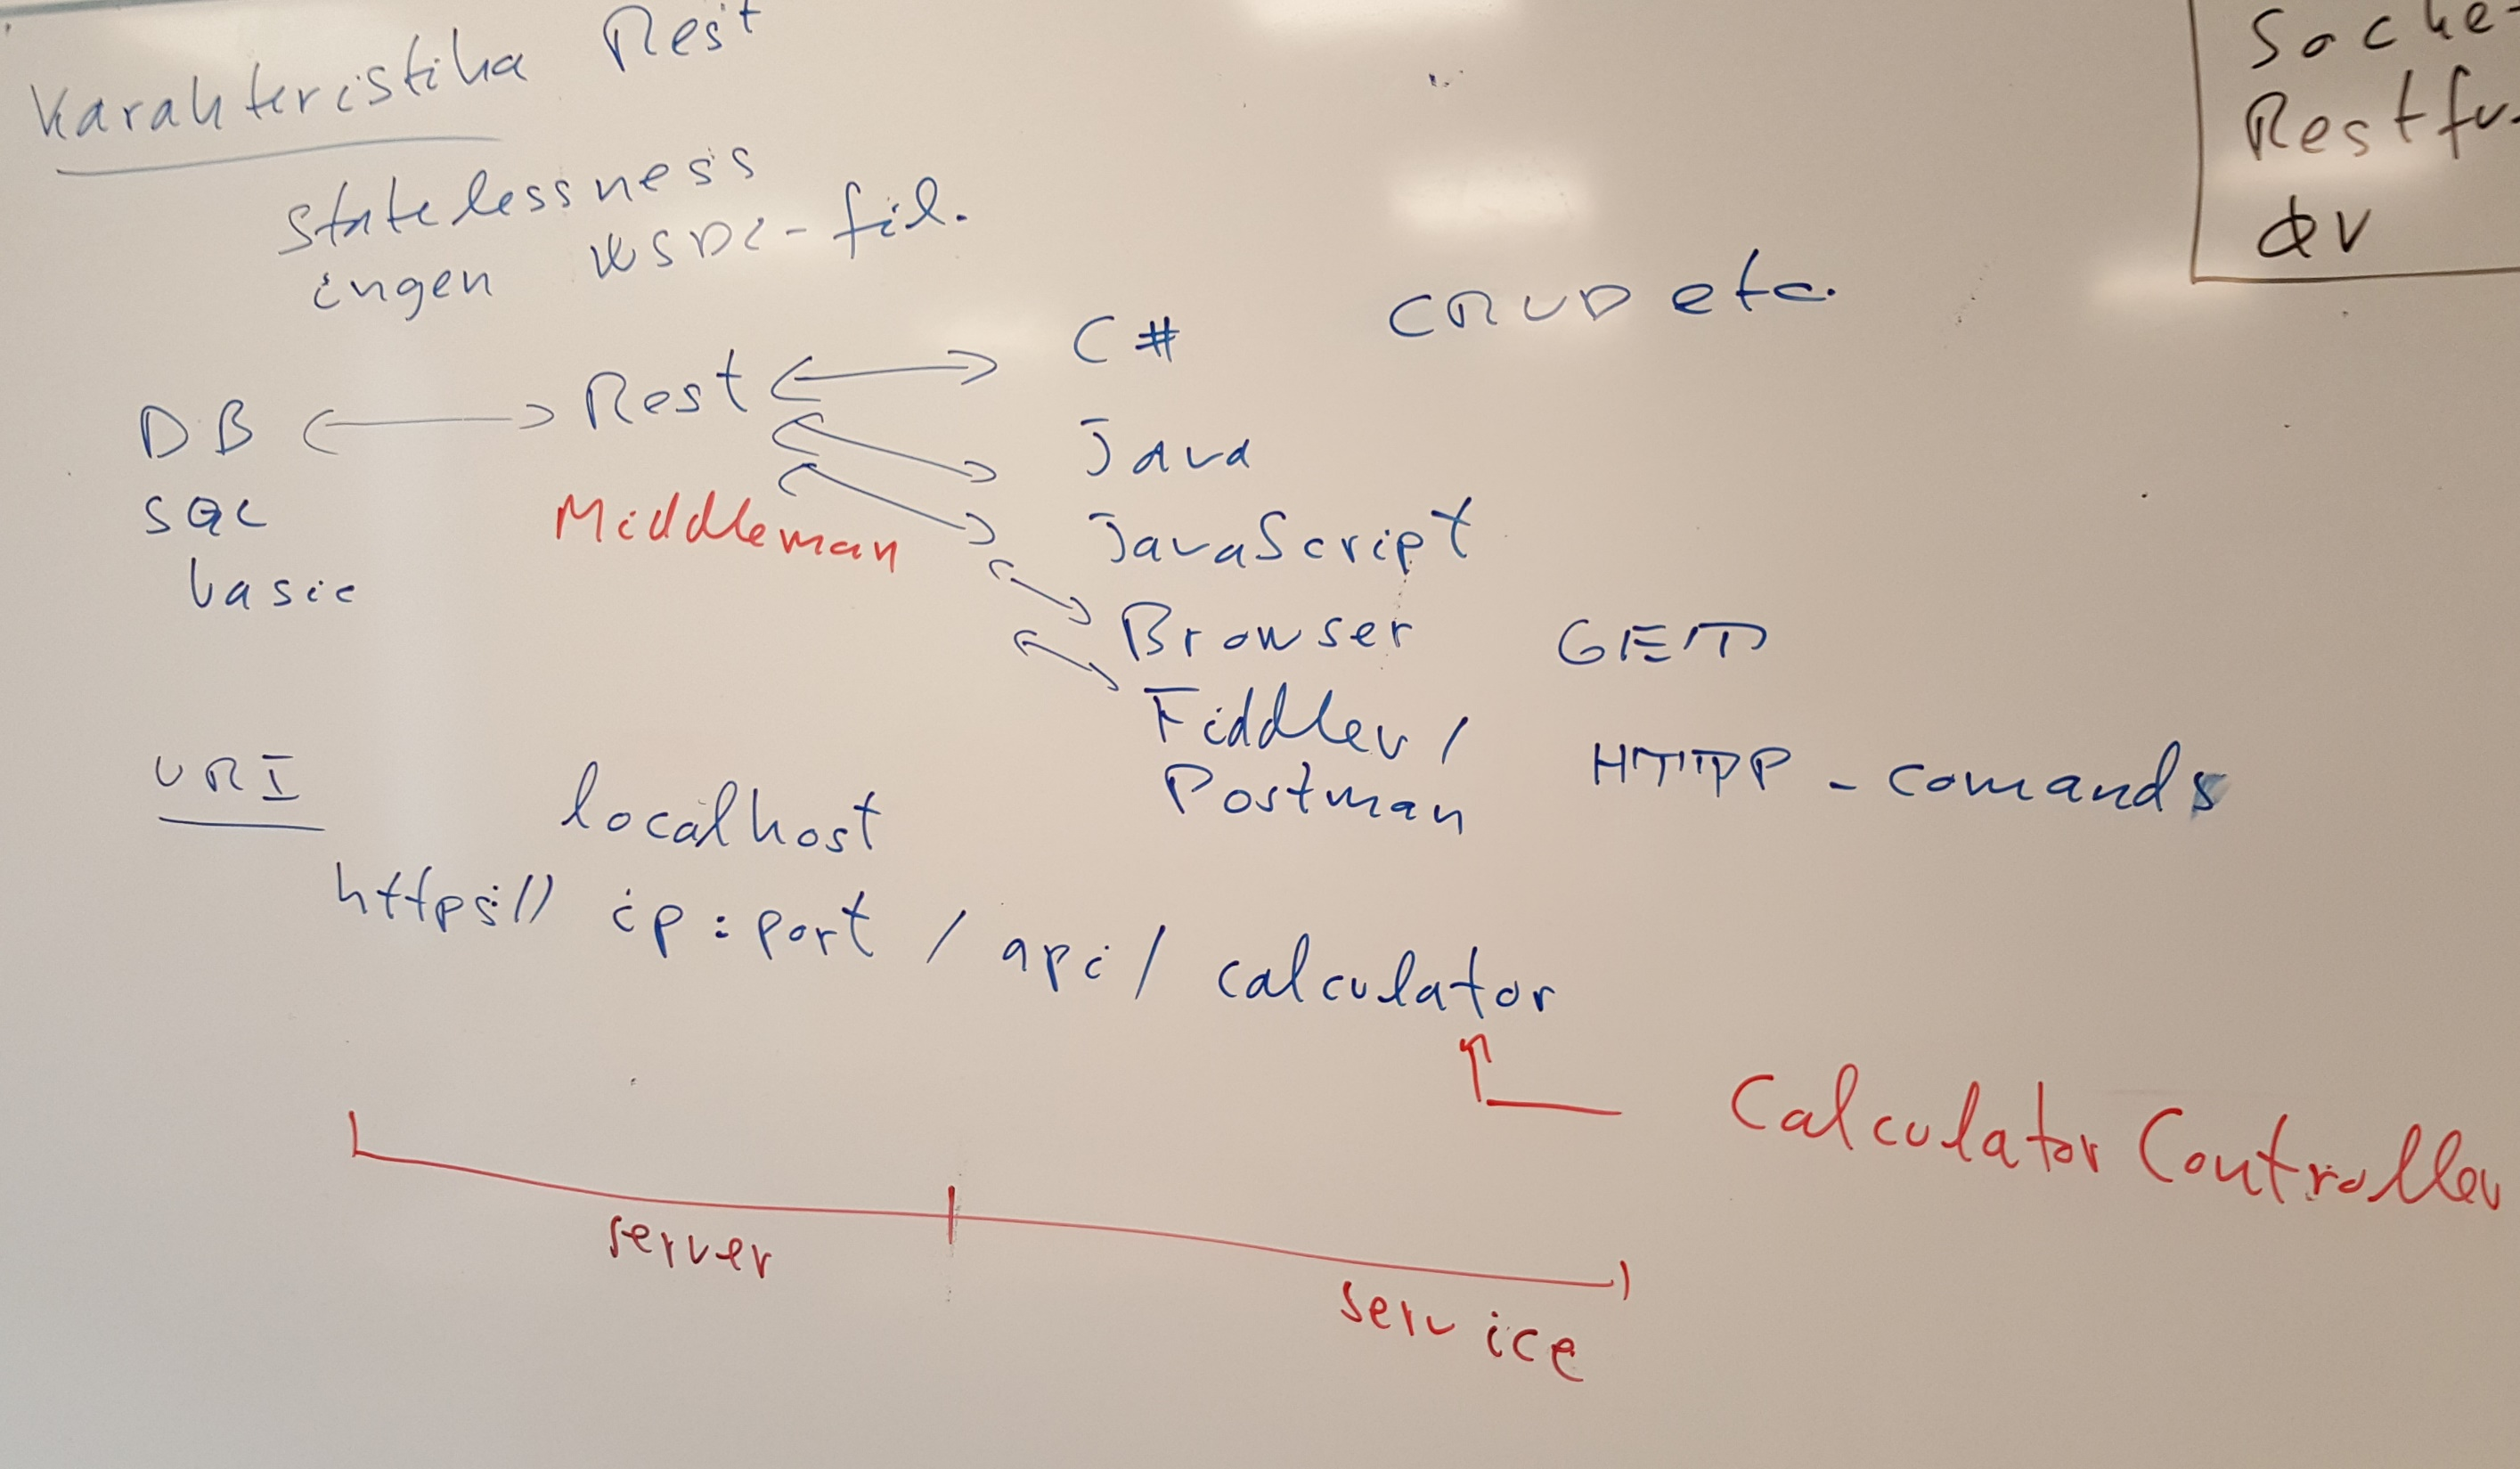 Karakteristika Rest
statelessness
ingen WSDL-fil.
CRUD etc.
DB Rest C#
SQL
basic
Middleman
Java
JavaScript
Browser GET
Fiddler /
Postman
HTTP - comands
URI
localhost
https:// ip : port / api / calculator
Calculator Controller
server
service